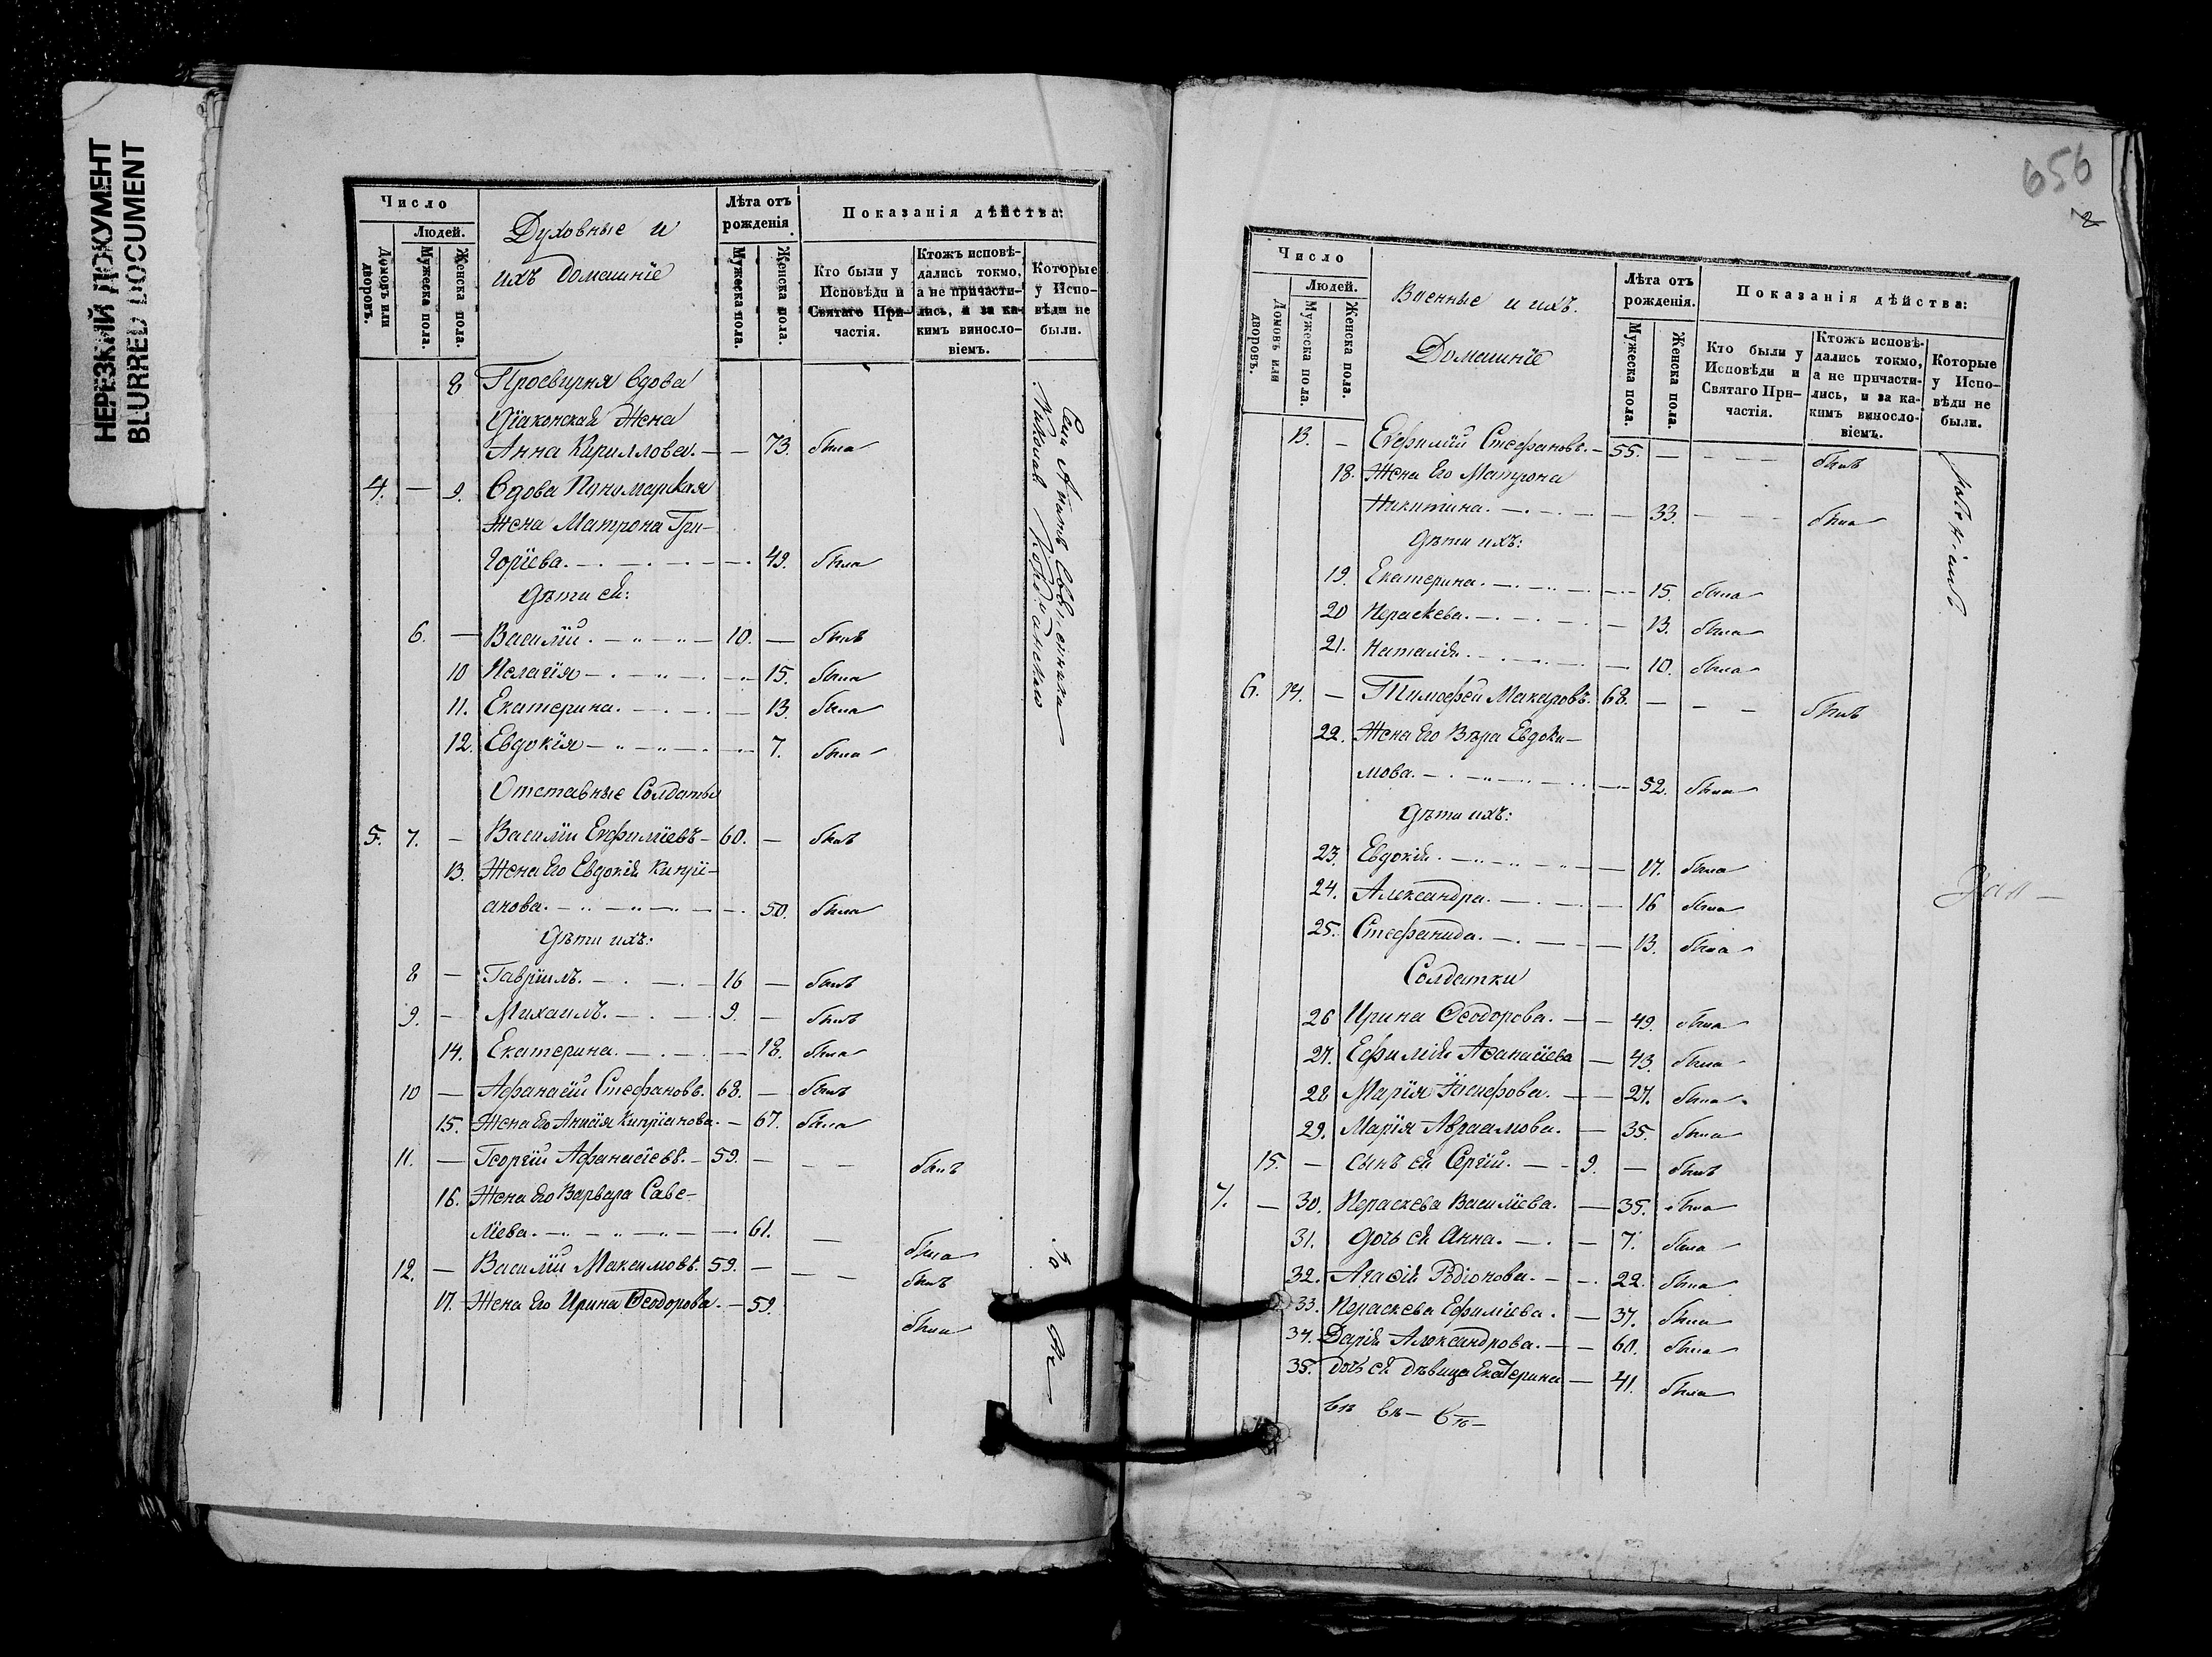 НЕРЕЗКИЙ ДОКУМЕНТ
BLURRED DOCUMENT
Число
Людей.
Домовъ или дворовъ.
Мужеска пола.
Женска пола.
Духовные и
ихъ домашніе
Лѣта отъ рожденія
Мужеска пола.
Женска пола.
Показанія дѣйства:
Кто были у Исповѣди и Святаго Причастія.
Ктожъ исповѣдались токмо, а не причастились, и за какимъ винословіемъ.
Которые у Исповѣди не были.
8 Просвирня вдова
Діаконская жена
Анна Кириллова. — — 73. была
4. — 9. Вдова Пономарская
жена Матрона Гри-
горіева. — 49. была
Дѣти ея:
6. — Василій. — 10. — былъ
10 Пелагія — 15. была
11. Екатерина. — 13. была
12. Евдокія — 7. была
Отставные Солдаты
5. 7. — Василій Евфиміевъ — 60. — былъ
13. Жена его Евдокія Кипрі-
анова. — 50. была
Дѣти ихъ:
8 — Гавріилъ. — 16 — былъ
9. — Михаилъ. — 9. — былъ
14. Екатерина. — 18. была
10 — Афанасій Стефановъ. 68. — былъ
15. Жена его Анисія Кипріанова. — 67. была
11. — Георгій Афанасіевъ. — 59. — былъ
16. Жена его Варвара Саве-
ліева. — 61. — была
12. — Василій Максимовъ. 59. — былъ
17. Жена его Ирина Ѳеодорова. — 59. была
656
2
Число
Людей.
Домовъ или дворовъ.
Мужеска пола.
Женска пола.
Военные и ихъ.
Домашніе
Лѣта отъ рожденія.
Мужеска пола.
Женска пола.
Показанія дѣйства:
Кто были у Исповѣди и Святаго Причастія.
Ктожъ исповѣдались токмо, а не причастились, и за какимъ винословіемъ.
Которые у Исповѣди не были.
13. — Евфимій Стефановъ. — 55. — былъ
18. Жена его Матрона
Никитина. — 33. — была
Дѣти ихъ:
19. Екатерина. — 15. была
20 Пераскева. — 13. была
21. Наталія. — 10. была
6. 14. — Тимофей Макаровъ. 68. — былъ
22. Жена его Вѣра Евдоки-
мова. — 52. была
Дѣти ихъ:
23. Евдокія. — 17. была
24. Александра. — 16 была
25. Стефанида. — 13. была
Солдатки
26 Ирина Ѳеодорова. — 49. была
27. Ефимія Аѳанасіева — 43. была
28 Марія Іосифова. — 27. была
29. Марія Авраамова. — 35. была
15. — сынъ ея Сергій. — 9. — былъ
7. — 30. Пераскева Василіева. — 35. была
31. дочь ея Анна. — 7. была
32. Агаѳія Родіонова. — 22. была
33. Пераскева Ефиміева. — 37. была
34. Дарія Александрова. — 60. была
35. дочь ея дѣвица Екатерина — 41. была